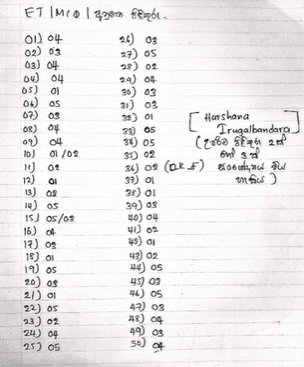 ET | MCQ | අනුමාන පිළිතුරු.
01) 04
02) 03
03) 04
04) 04
05) 01
06) 05
07) 03
08) 04
09) 04
10) 01/02
11) 02
12) 01
13) 02
14) 05
15) 05/03
16) 04
17) 03
18) 01
19) 05
20) 03
21) 01
22) 05
23) 02
24) 04
25) 05
26) 03
27) 05
28) 02
29) 04
30) 03
31) 03
32) 01
33) 05
34) 05
35) 02
36) 02
37) 01
38) 01
39) 03
40) 04
41) 02
42) 01
43) 02
44) 05
45) 03
46) 05
47) 03
48) 04
49) 03
50) 04
[ Harshana
Irugalbandara ]
පිළිතුරු 2ක්
හෝ 3ක්